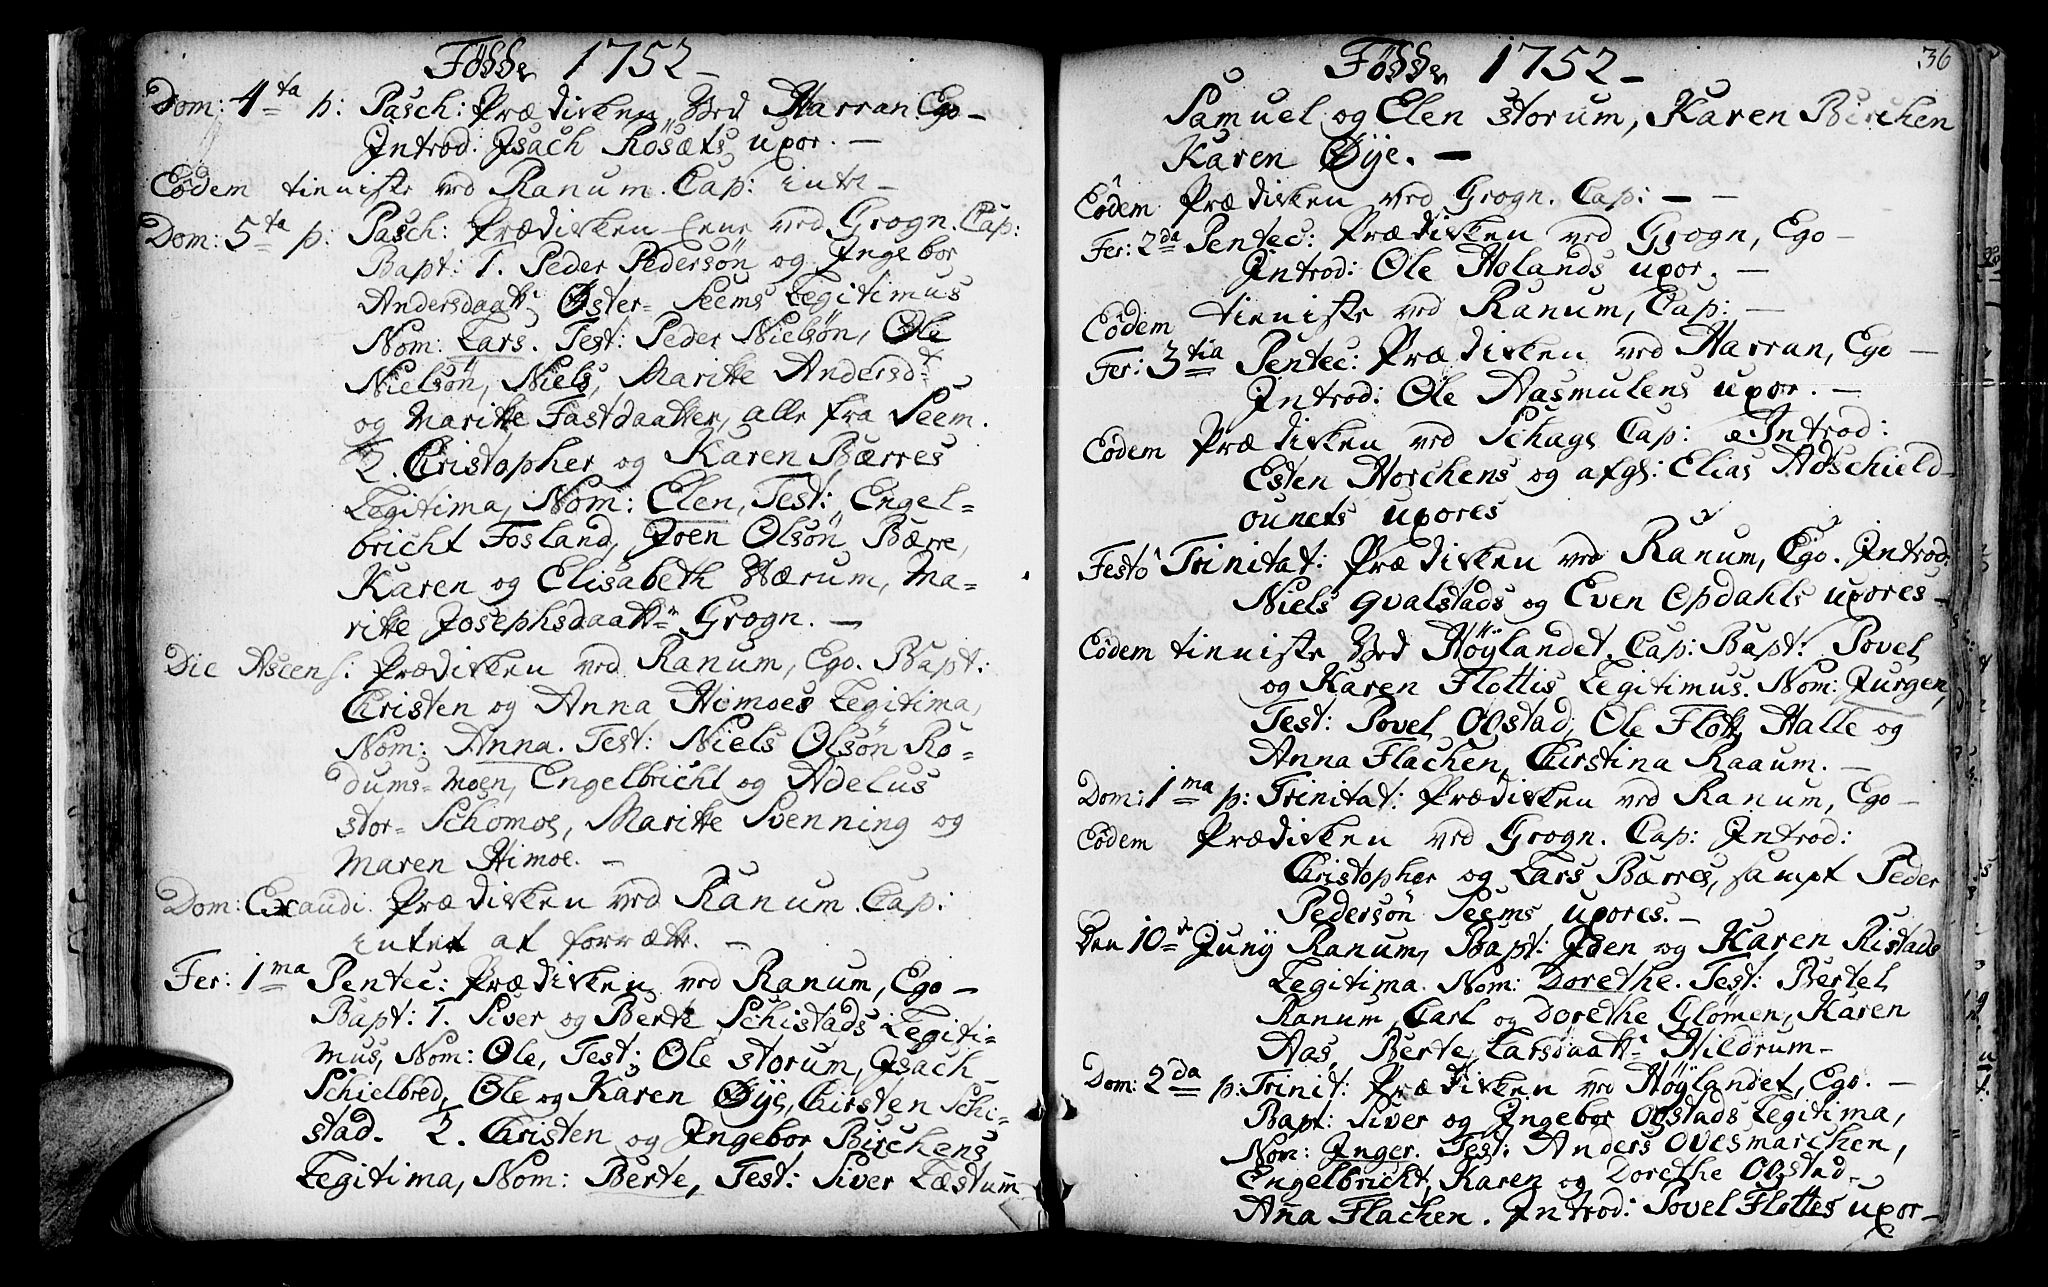 Fødde 1752
Dom: 4ta p: Pasch: Prædiken Ved Harran Ego –
Introd: Isach Rosæts uxor. –
Eôdem tieniste ved Ranum. Cap: intr –
Dom: 5ta p: Pasch: Prædiken Eene ved Grogn. Cap:
Bapt: 1. Peder Pedersön og Ingebor
Andersdaatt: Øster= Seems Legitimus
Nom: Lars. Test: Peder Nielsön, Ole
Nielsön, Niels, Maritte Andersd:
og Maritte Fastdaatter, alle fra Seem.
2. Christopher og Karen Bærres
Legitima, Nom: Elen, Test: Engel=
bricht Fosland, Joen Olsön Bærre,
Karen og Elisabeth Værum, Ma=
ritte Josephsdaatt: Grogn. –
Die Ascens: Prædiken ved Ranum, Ego. Bapt:
Christen og Anna Homoes Legitima,
Nom: Anna. Test: Niels Olsön Ro=
dums= Moen, Engelbricht og Adelus
stor= Schomoe, Maritte Svenning og
Maren Himoe. –
Dom: Exaudi. Prædiken ved Ranum. Cap:
intet at forrætte. –
Fer: 1ma Pentec: Prædiken ved Ranum, Ego –
Bapt: 1. Siver og Berte Schistads Legiti=
mus, Nom: Ole, Test: Ole Storum, Isach
Schielbred, Ole og Karen Øije, Christen Schi=
stad. 2. Christen og Ingebor Birchens
Legitima, Nom: Berte, Test: Siver Læstum
Fødde 1752 –
36
Samuel og Elen Storum, Karen Birchen
Karen Øije. –
Eôdem Prædiken ved Grogn. Cap: – –
Fer: 2da Pentec: Prædiken ved Grogn, Ego –
Introd: Ole Holands uxor. –
Eôdem tieniste ved Ranum, Cap: –
Fer: 3tia Pentec: Prædiken ved Harran, Ego –
Introd: Ole Aasmulens uxor. –
Eôdem Prædiken ved Schage Cap: Introd:
Esten Horchens og afgl: Elias Adschield=
ounets uxores
Festô Trinitat: Prædiken ved Ranum, Ego. Introd:
Niels Qvalstads og Even Opdahls uxores –
Eôdem tieniste Ved Höylandet. Cap: Bapt: Povel
og Karen Flottis Legitimus. Nom: Jurgen,
Test: Povel Obstad, Ole Flott, Halle og
Anna Flachen, Christina Raaum. –
Dom: 1ma p: Trinitat: Prædiken ved Ranum, Ego –
Eôdem Prædiken ved Grogn. Cap: Introd:
Christopher og Lars Bærres, sampt Peder
Pedersön Seems uxores. –
Den 10de Junÿ Ranum, Bapt: Iden og Karen Ristads
Legitima. Nom: Dorethe. Test: Bertel
Ranum, Carl og Dorethe Glömen, Karen
Aas, Berte Larsdaatt: Hildrum –
Dom: 2da p: Trinit: Prædiken ved Höylandet, Ego. –
Bapt: Siver og Ingebor Obstads Legitima,
Nom: Inger. Test: Anders Ovesmarchen,
Engelbricht, Karen og Dorethe Obstad,
Anna Flachen. Introd: Povel Flottes uxor –